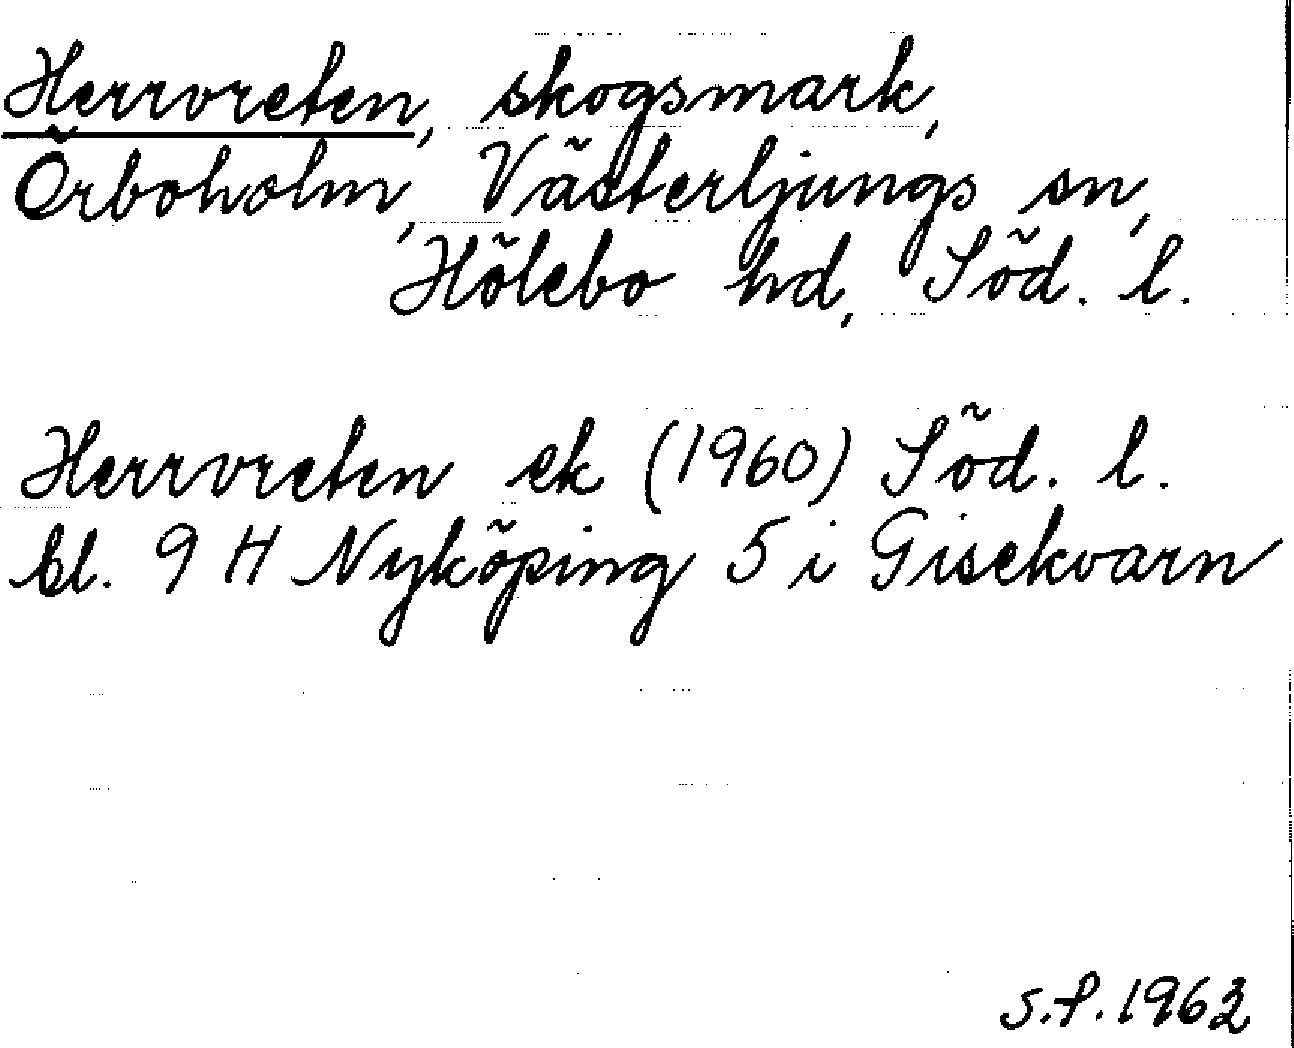 Herrvreten, skogsmark,
Örboholm, Västerljungs sn,
Hölebo hd, Söd. l.
Herrvreten ek (1960) Söd. l.
bl. 9 H Nyköping 5 i Gisekvarn
S.P. 1963